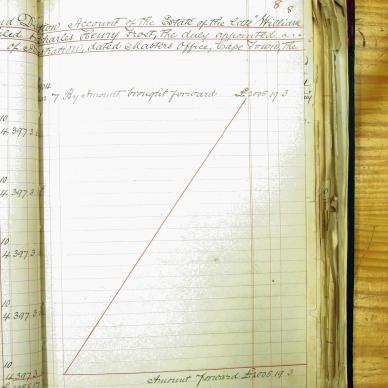 8 8.
nd Distion Account of the Estate of the late William
Charles Henry Frost, the duly appointed
of dated Masters Office, Cape Town, the
7 By Amount brought forward £2005.19.3
10
4 397.3
10
4 397.3
10
4 397.3
10
4 397.3
10
4 397.3
Amount forward £2005.19.3